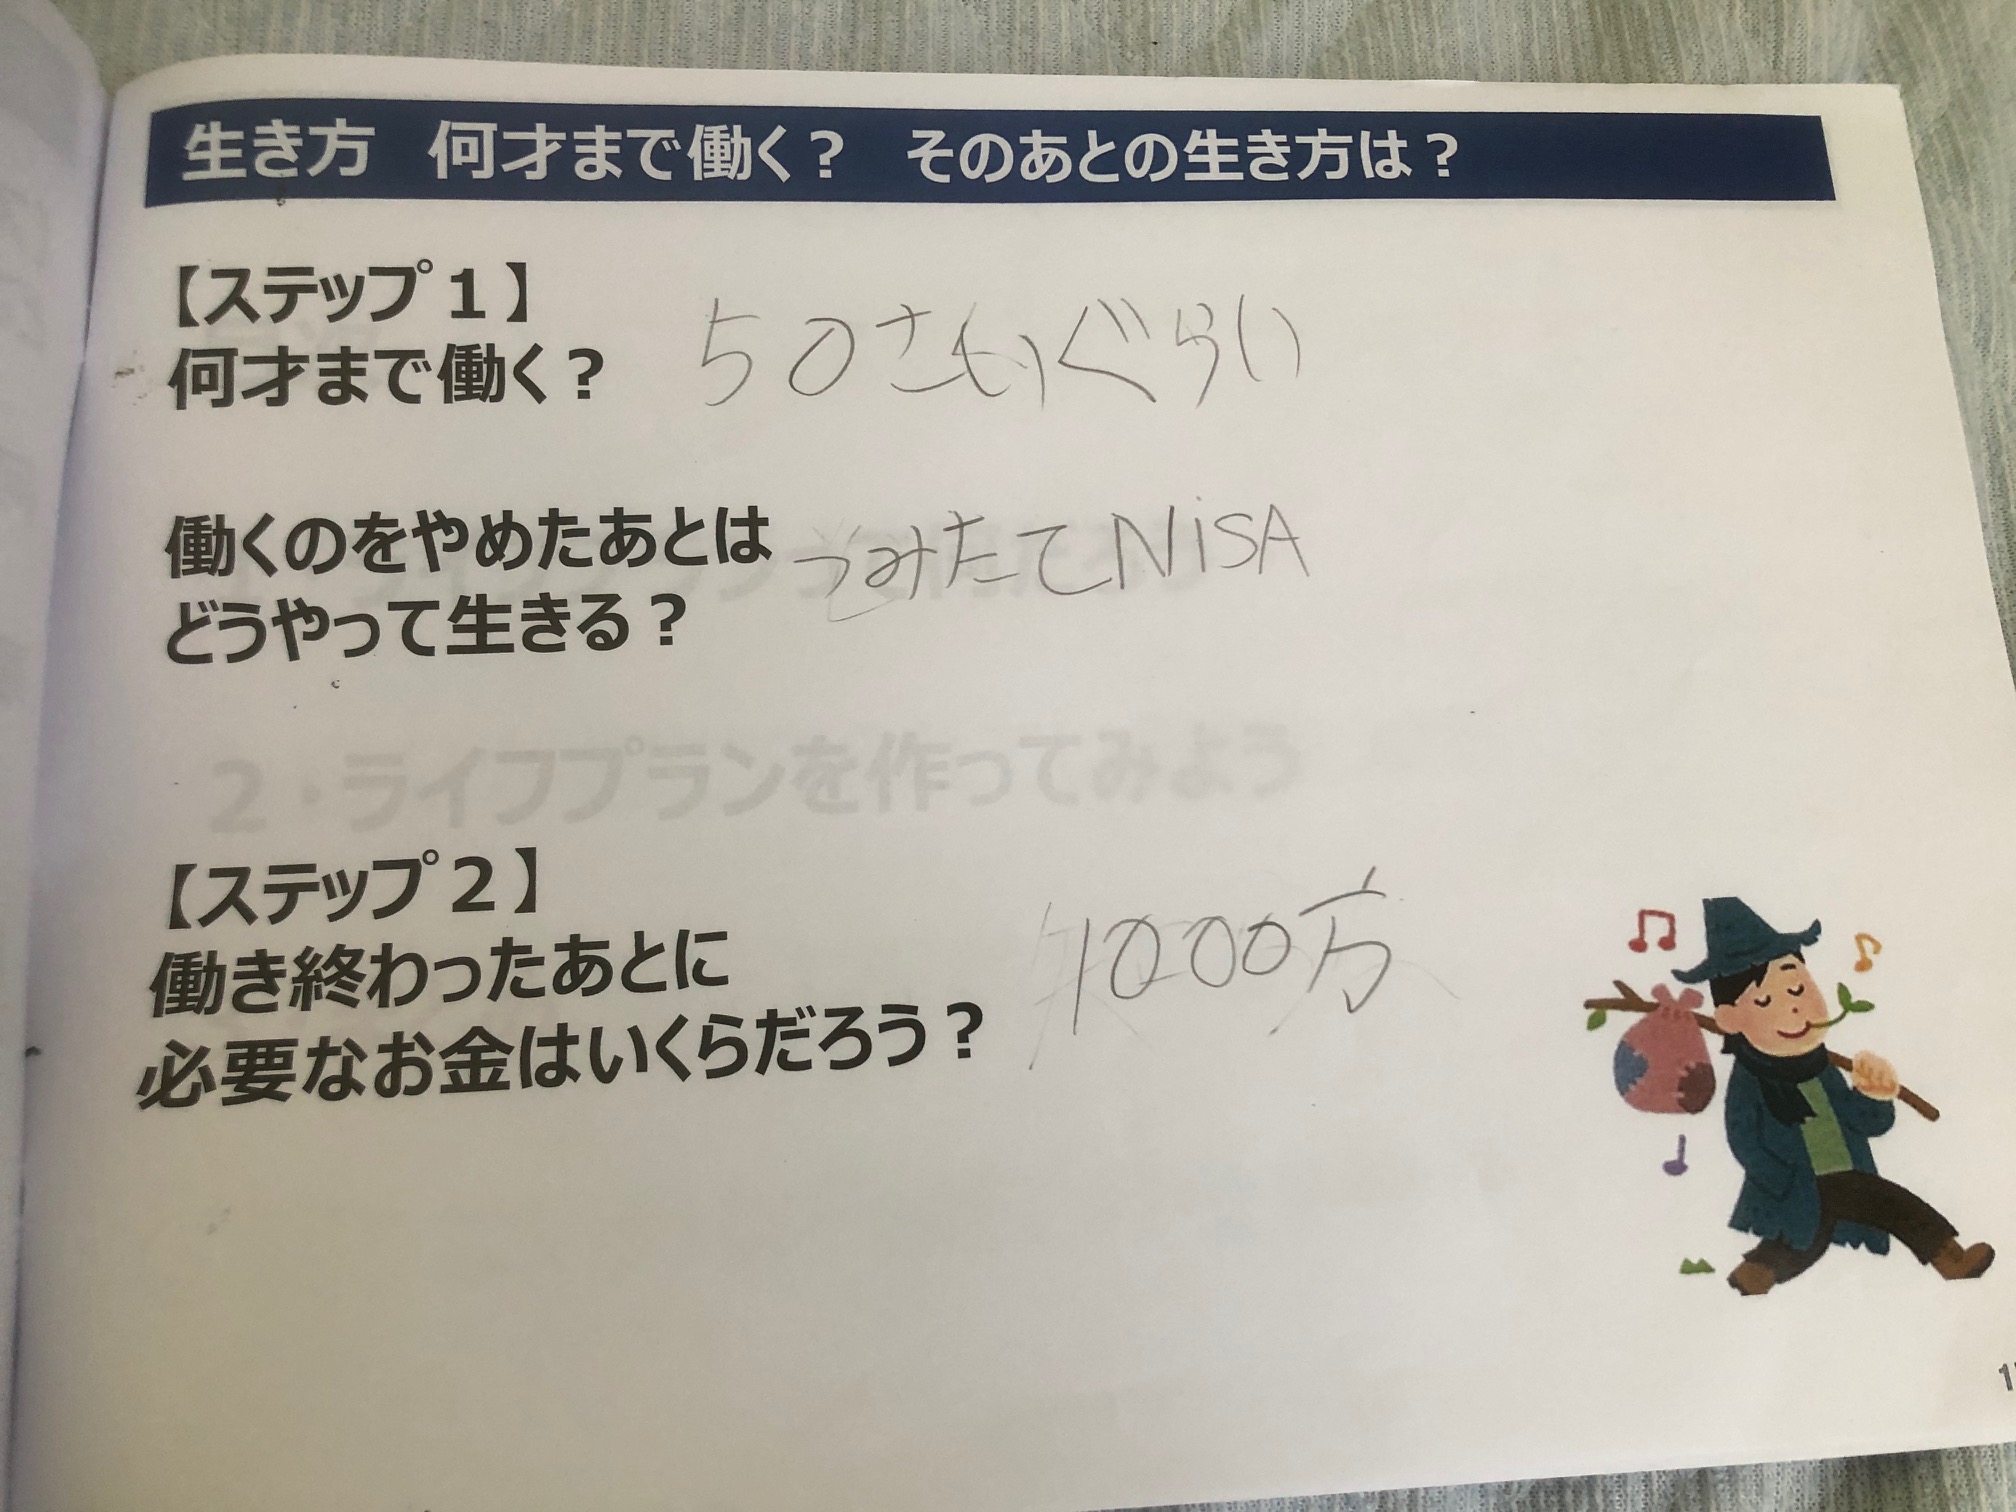 生き方　何才まで働く？　そのあとの生き方は？
【ステップ１】
何才まで働く？
50さいぐらい
働くのをやめたあとは
どうやって生きる？
つみたてNiSA
2・ライフプランを作ってみよう
【ステップ２】
働き終わったあとに
必要なお金はいくらだろう？
1000万